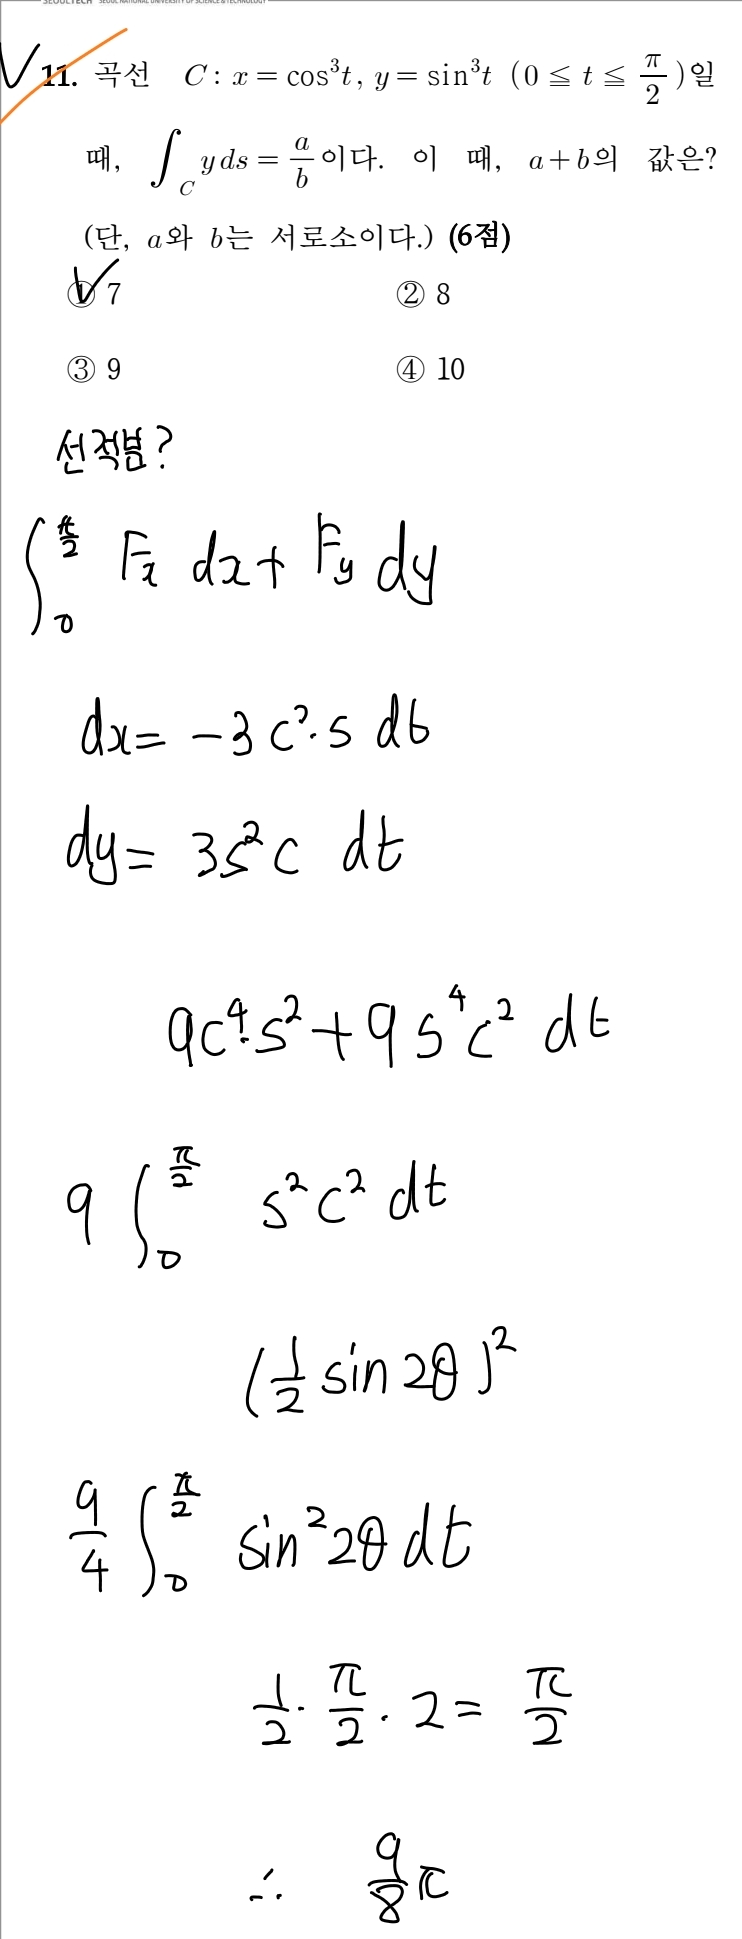 SEOULTECH SEOUL NATIONAL UNIVERSITY OF SCIENCE & TECHNOLOGY
11. 곡선 C : x = cos³t, y = sin³t (0 ≦ t ≦ π/2)일
때, ∫_C y ds = a/b 이다. 이 때, a+b의 값은?
(단, a와 b는 서로소이다.) (6점)
① 7 ② 8
③ 9 ④ 10
선적분?
∫₀^(π/2) Fx dx + Fy dy
dx = -3c²·s dt
dy = 3s²c dt
9c⁴·s² + 9s⁴c² dt
9 ∫₀^(π/2) s²c² dt
(1/2 sin 2θ)²
9/4 ∫₀^(π/2) sin²2θ dt
1/2 · π/2 · 2 = π/2
∴ 9/8 π